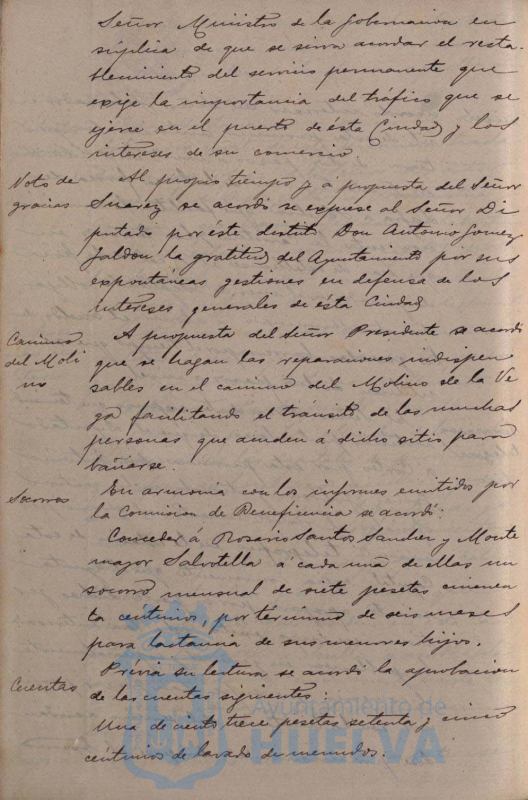 Señor Ministro de la Gobernacion en
súplica de que se sirva acordar el resta-
blecimiento del servicio permanente que
exige la importancia del tráfico que se
ejerce en el puerto de ésta Ciudad y los
intereses de su comercio.
Voto de
gracias
Al propio tiempo y á propuesta del Señor
Suarez se acordó se exprese al Señor Di
putado por éste distito Don Antonio Gomez
Jaldon la gratitud del Ayuntamiento por sus
expontáneas gestiones en defensa de los
intereses generales de ésta Ciudad
Camino
del Moli
no
A propuesta del Señor Presidente se acordó
que se hagan las reparaciones indispen
sables en el camino del Molino de la Ve
ga facilitando el tránsito de las muchas
personas que acuden á dicho sitio para
bañarse.
Socorros
En armonia con los informes emitidos por
la Comision de Beneficencia se acordó:
Conceder á Rosario Santos Sanchez y Monte
mayor Salvatella á cada una de ellas un
socorro mensual de siete pesetas cincuen
ta centimos, por término de seis meses
para lactancia de sus menores hijos.
Cuentas
Prévia su lectura se acordó la aprobacion
de las cuentas siguientes:
Una de ciento trece pesetas setenta y cinco
céntimos de lavado de menudos.
Ayuntamiento de
HUELVA